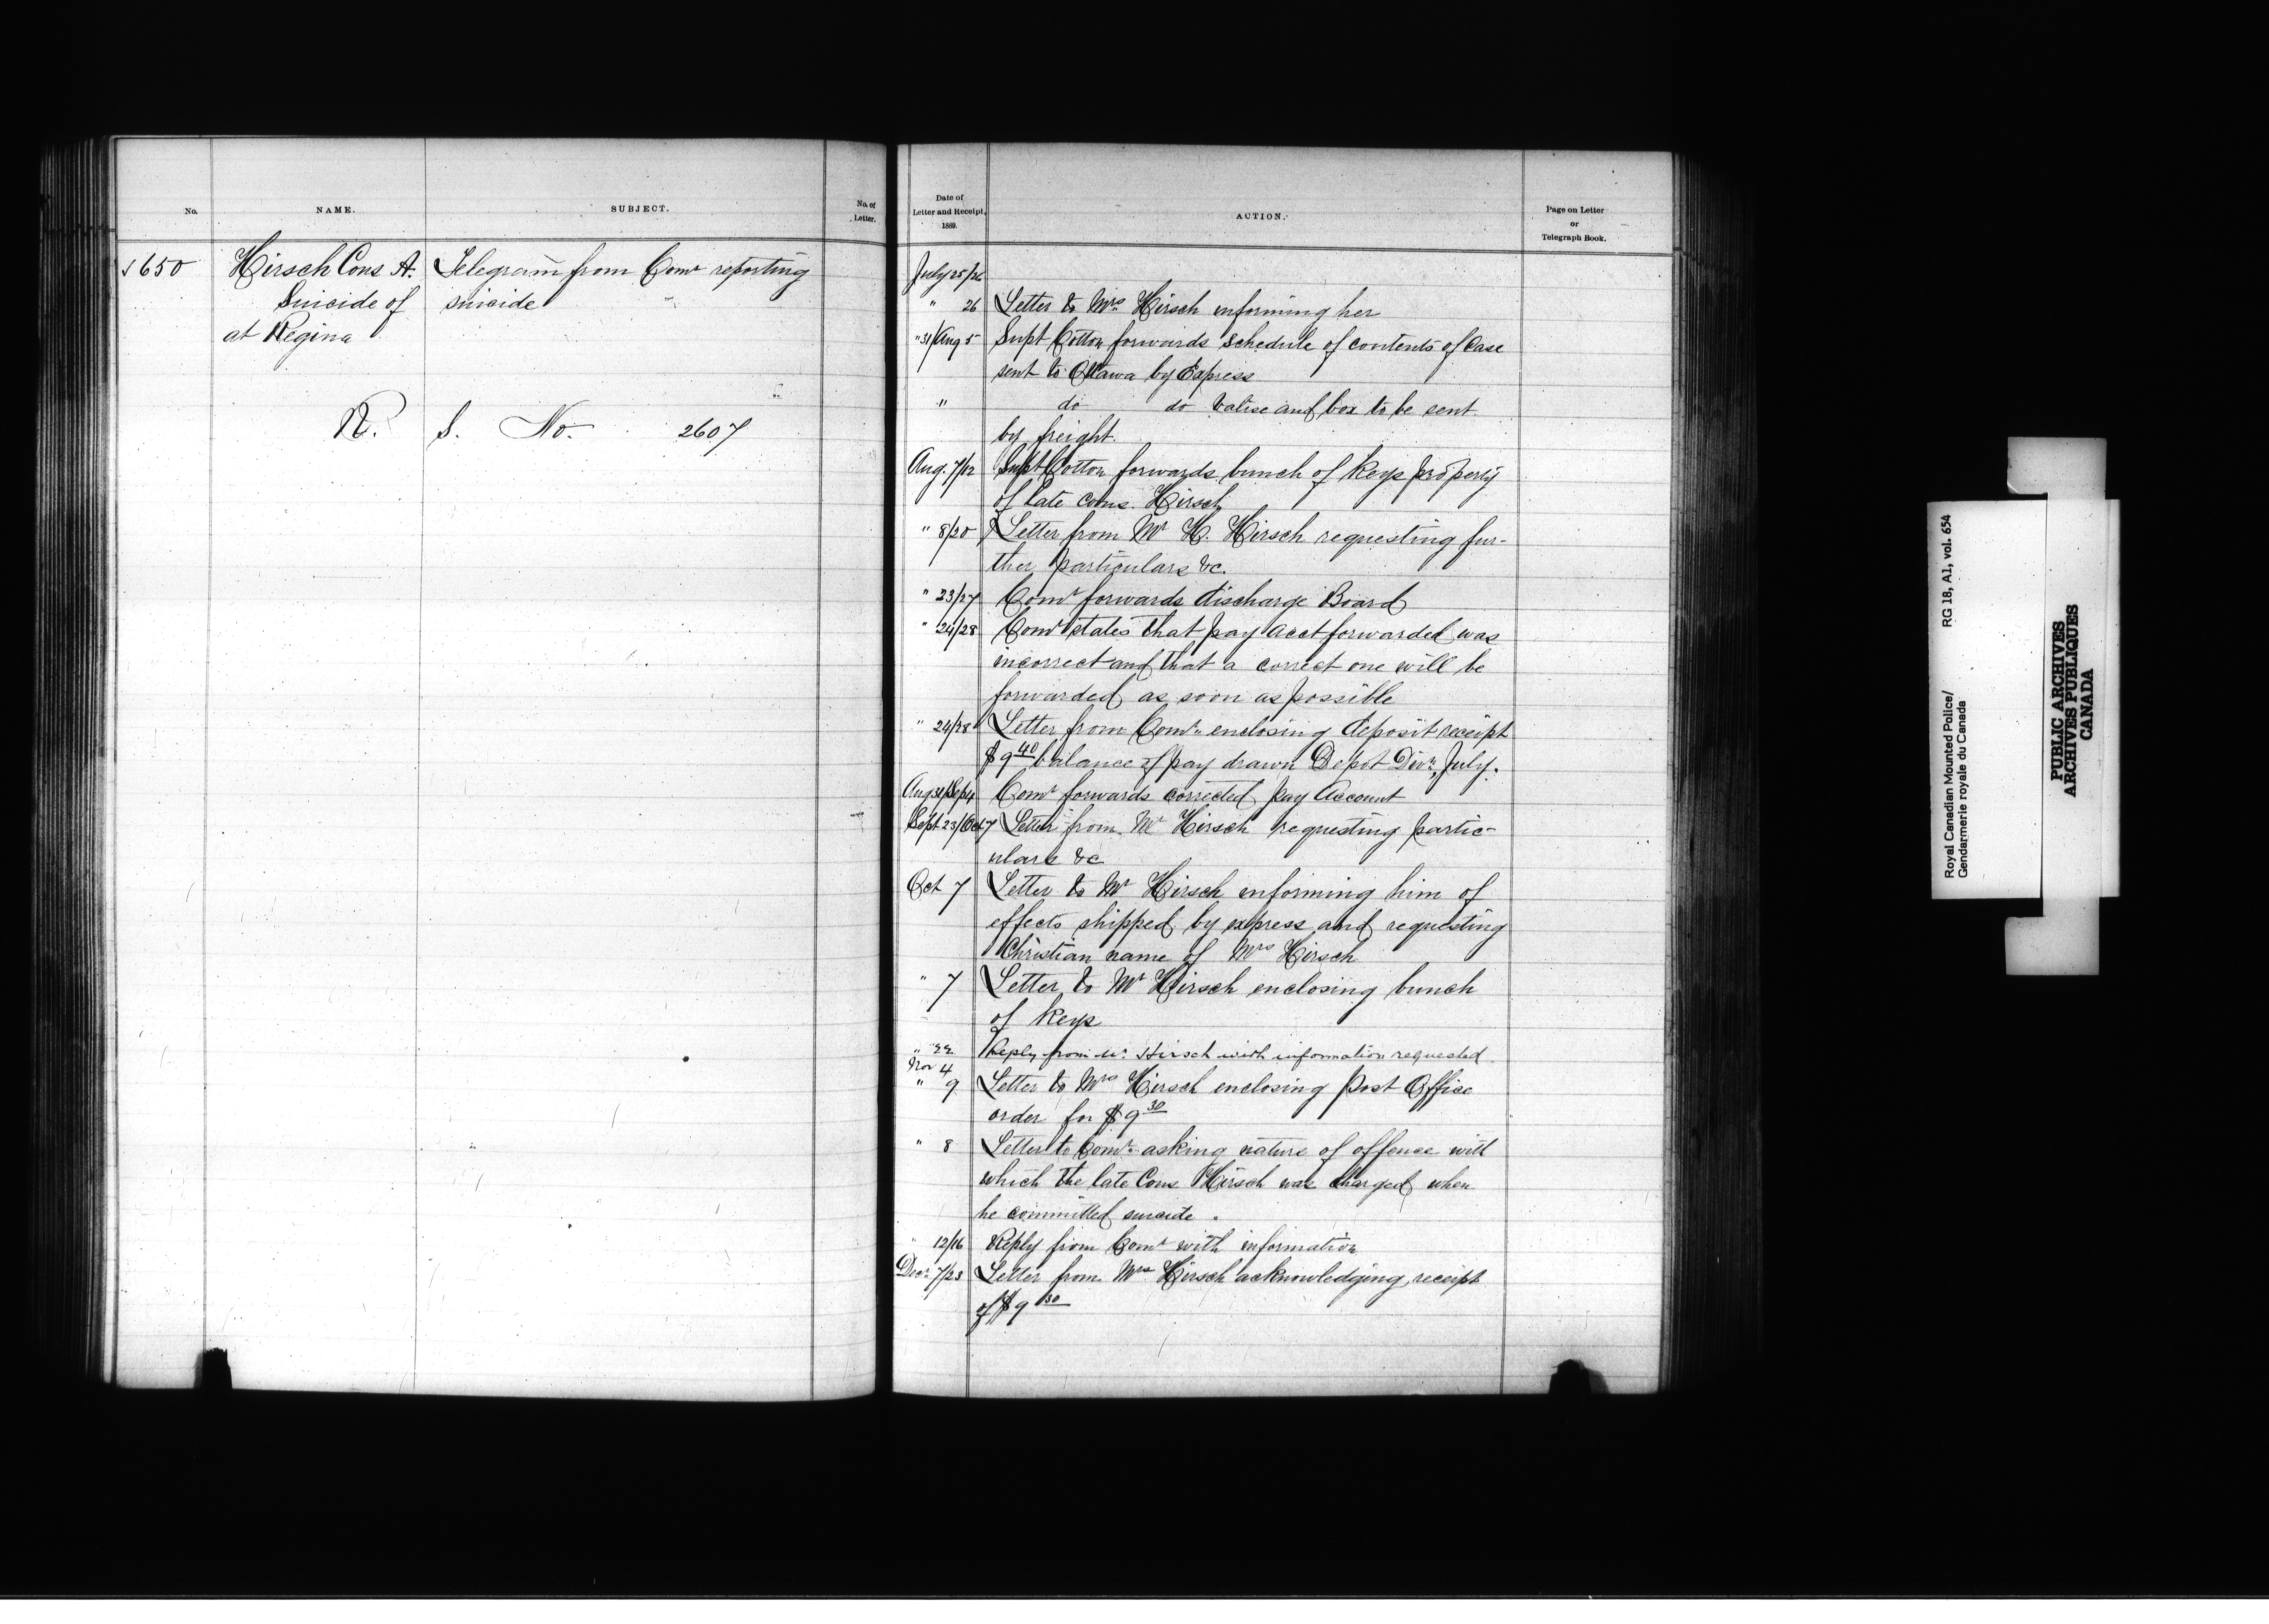 No.
NAME.
SUBJECT.
No. of
Letter.
650
Hirsch Cons A.
Suicide of
at Regina
Telegram from Comr reporting
suicide
R. S. No. 2607
Date of
Letter and Receipt,
1889.
ACTION.
Page on Letter
or
Telegraph Book.
July 25/26
" 26 Letter to Mrs Hirsch informing her
" 31/Aug 5 Supt Cotton forwards schedule of contents of Case
sent to Ottawa by Express
" do do valise and box to be sent
by freight.
Aug. 7/12 Supt Cotton forwards bunch of keys property
of late Cons. Hirsch
" 8/20 Letter from Mr H. Hirsch requesting fur-
ther particulars &c.
" 23/27 Comr forwards discharge Board
" 24/28 Comr states that pay acct forwarded was
incorrect and that a correct one will be
forwarded as soon as possible
" 24/28 Letter from Comr enclosing deposit receipt
$9 40 balance of pay drawn Depot Divn, July.
Aug 31/Sep 4 Comr forwards corrected pay Account
Sept 23/Oct 7 Letter from Mr Hirsch requesting partic-
ulars &c
Oct 7 Letter to Mr Hirsch informing him of
effects shipped by express and requesting
Christian name of Mrs Hirsch
" 7 Letter to Mr Hirsch enclosing bunch
of keys
" 22 Reply from Mr. Hirsch with information requested
Nov 4
" 9 Letter to Mrs Hirsch enclosing Post Office
order for $9 30
" 8 Letter to Comr asking nature of offence with
which the late Cons Hirsch was charged when
he committed suicide.
" 12/16 Reply from Comr with information
Decr 7/23 Letter from Mrs Hirsch acknowledging receipt
of $9 30
Royal Canadian Mounted Police/ RG 18, A1, vol. 654
Gendarmerie royale du Canada
PUBLIC ARCHIVES
ARCHIVES PUBLIQUES
CANADA